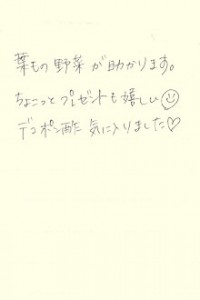 葉もの野菜が助かります。
ちょこっとプレゼントも嬉しい☺
デコポン酢気に入りました♡